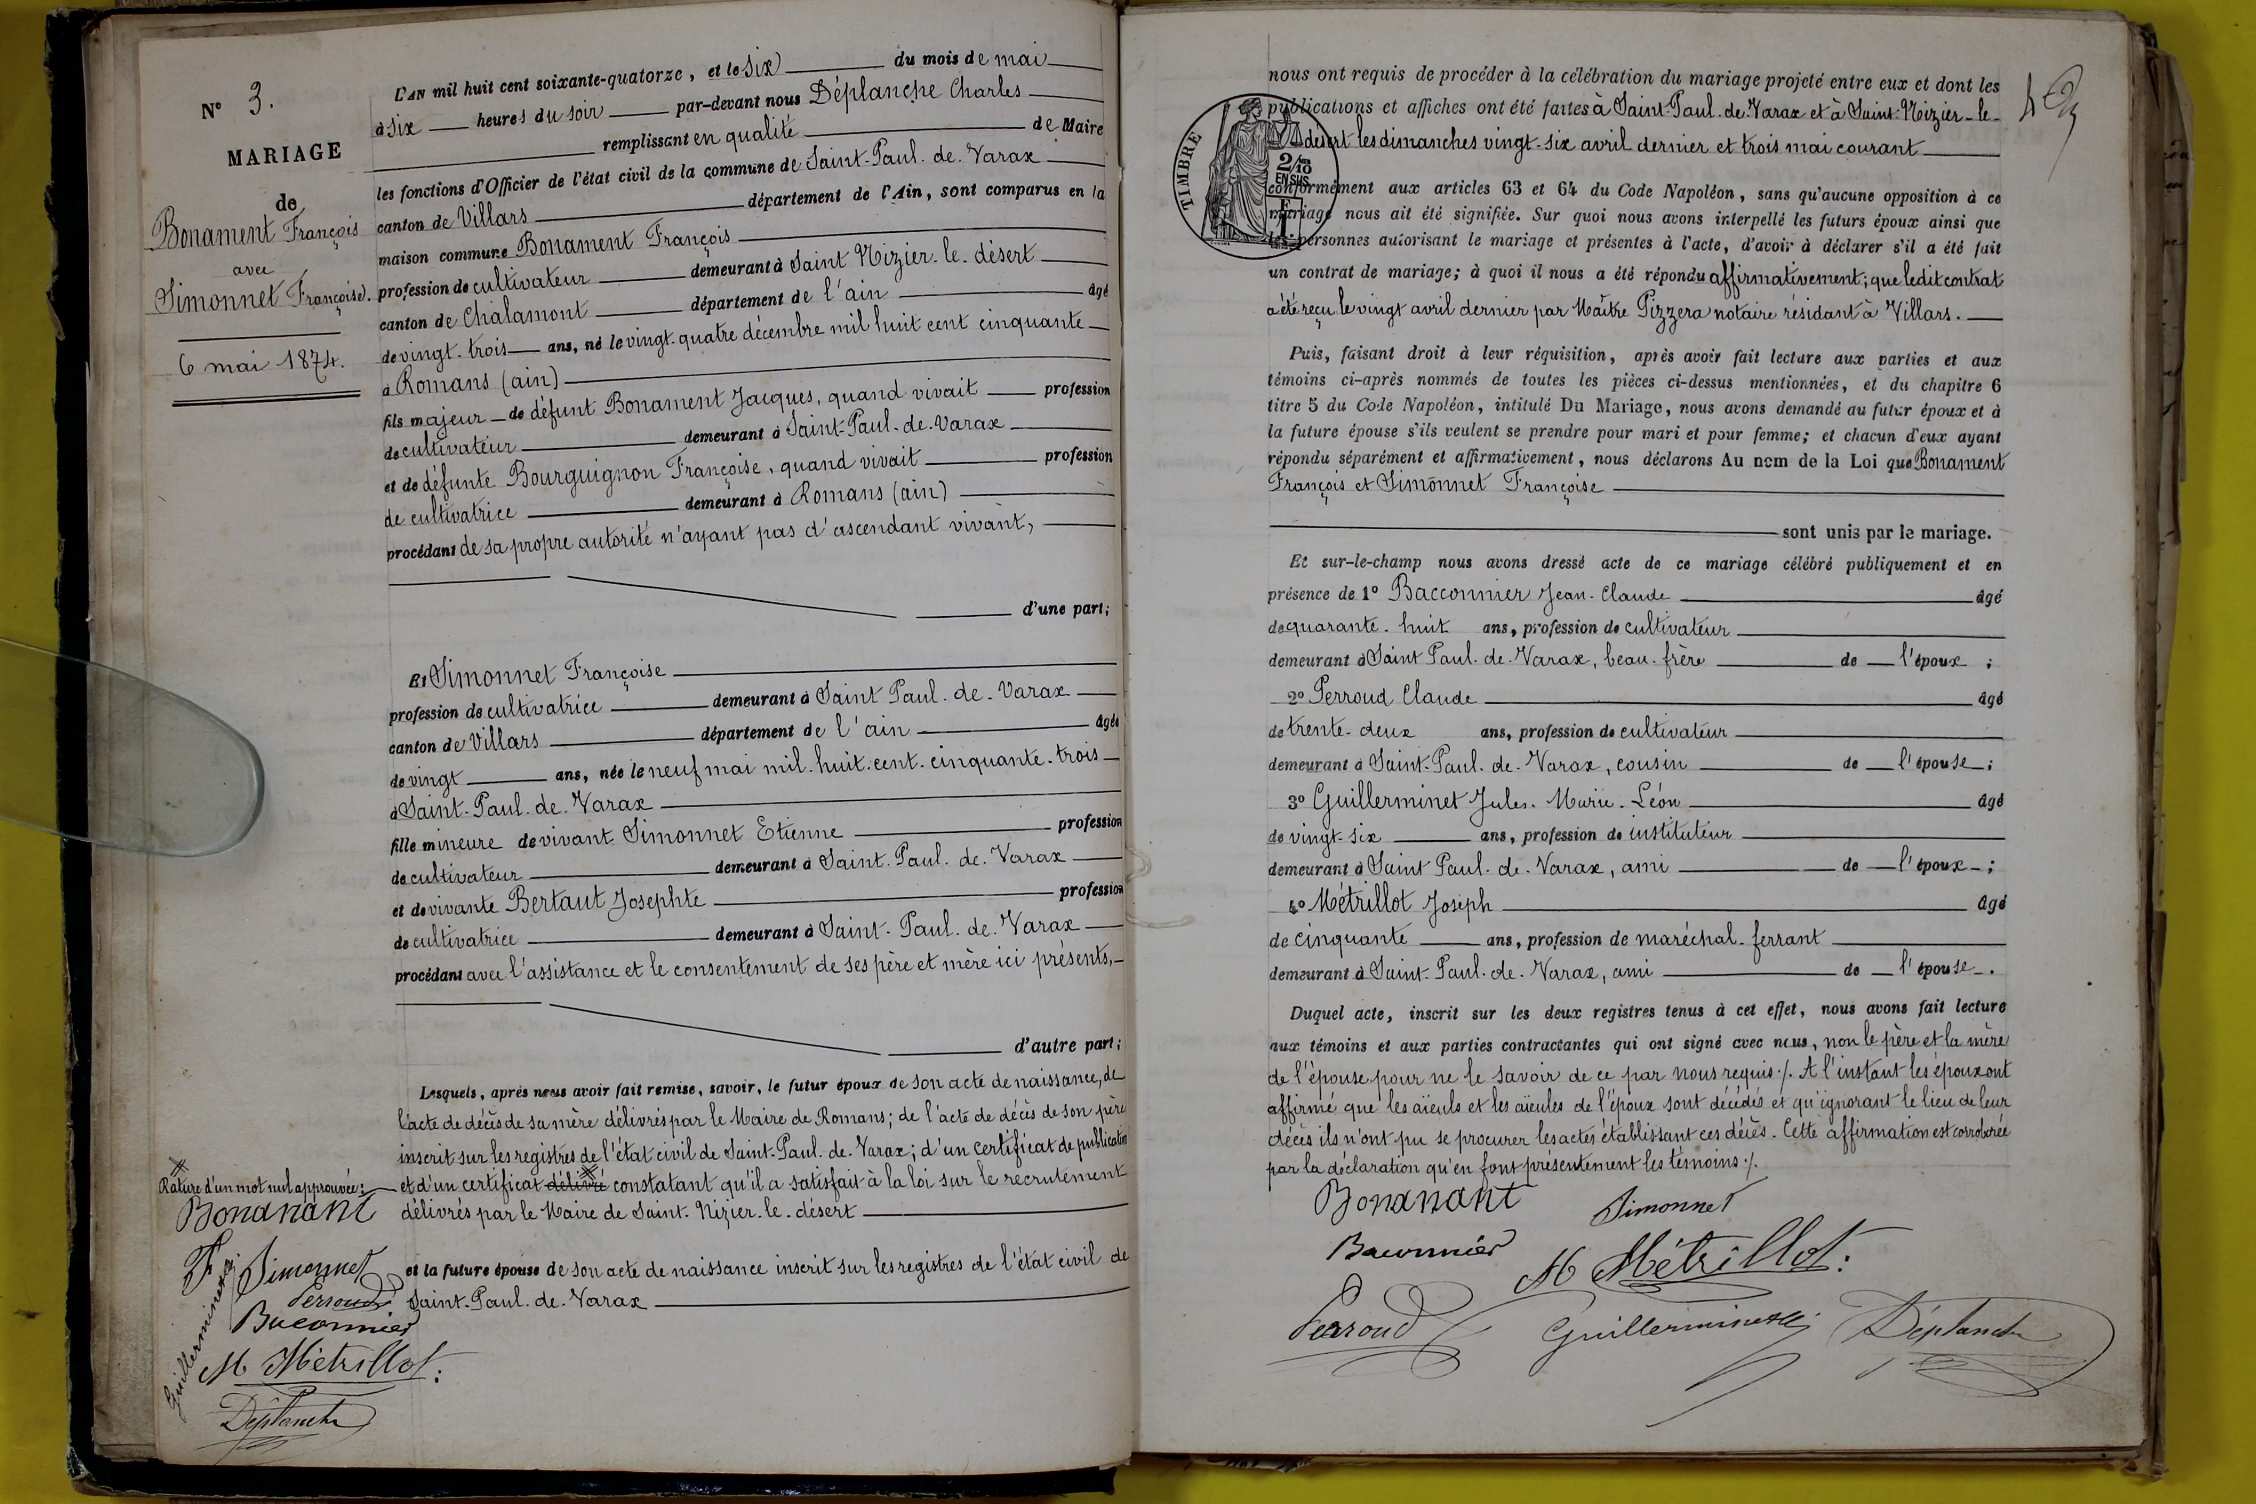 N° 3.
MARIAGE
de
Bonament François
avec
Simonnet Françoise.
6 mai 1874.
L'AN mil huit cent soixante-quatorze, et le six du mois de mai
à six heures du soir par-devant nous Déplanche Charles
remplissant en qualité de Maire
les fonctions d'Officier de l'état civil de la commune de Saint-Paul-de-Varax
canton de Villars département de l'Ain, sont comparus en la
maison commune Bonament François
profession de cultivateur demeurant à Saint Nizier-le-désert
canton de Chalamont département de l'ain âgé
de vingt-trois ans, né le vingt-quatre décembre mil huit cent cinquante
à Romans (ain)
fils majeur de défunt Bonament Jacques, quand vivait profession
de cultivateur demeurant à Saint-Paul-de-Varax
et de défunte Bourguignon Françoise, quand vivait profession
de cultivatrice demeurant à Romans (ain)
procédant de sa propre autorité n'ayant pas d'ascendant vivant,
d'une part;
Et Simonnet Françoise
profession de cultivatrice demeurant à Saint Paul-de-Varax
canton de Villars département de l'ain âgée
de vingt ans, née le neuf mai mil-huit-cent-cinquante-trois
à Saint-Paul-de-Varax
fille mineure de vivant Simonnet Etienne profession
de cultivateur demeurant à Saint-Paul-de-Varax
et de vivante Bertaut Josephte profession
de cultivatrice demeurant à Saint-Paul-de-Varax
procédant avec l'assistance et le consentement de ses père et mère ici présents,
d'autre part;
Lesquels, après nous avoir fait remise, savoir, le futur époux de son acte de naissance, de
l'acte de décès de sa mère délivrés par le Maire de Romans; de l'acte de décès de son père
inscrit sur les registres de l'état civil de Saint-Paul-de-Varax; d'un certificat de publication
et d'un certificat délivré constatant qu'il a satisfait à la loi sur le recrutement
délivrés par le Maire de Saint-Nizier-le-désert
et la future épouse de son acte de naissance inscrit sur les registres de l'état civil de
Saint-Paul-de-Varax
Rature d'un mot nul approuvée:
Bonanant
Fse Simonnet
Perroud
Baconnier
Guillerminet
M Métrillot:
Déplanche
nous ont requis de procéder à la célébration du mariage projeté entre eux et dont les
publications et affiches ont été faites à Saint-Paul-de-Varax et à Saint-Nizier-le-
désert les dimanches vingt-six avril dernier et trois mai courant
conformément aux articles 63 et 64 du Code Napoléon, sans qu'aucune opposition à ce
mariage nous ait été signifiée. Sur quoi nous avons interpellé les futurs époux ainsi que
les personnes autorisant le mariage et présentes à l'acte, d'avoir à déclarer s'il a été fait
un contrat de mariage; à quoi il nous a été répondu affirmativement; que ledit contrat
a été reçu le vingt avril dernier par Maître Pizzera notaire résidant à Villars.
TIMBRE
2/10
EN SUS
Puis, faisant droit à leur réquisition, après avoir fait lecture aux parties et aux
témoins ci-après nommés de toutes les pièces ci-dessus mentionnées, et du chapitre 6
titre 5 du Code Napoléon, intitulé Du Mariage, nous avons demandé au futur époux et à
la future épouse s'ils veulent se prendre pour mari et pour femme; et chacun d'eux ayant
répondu séparément et affirmativement, nous déclarons Au nom de la Loi que Bonament
François et Simonnet Françoise
sont unis par le mariage.
Et sur-le-champ nous avons dressé acte de ce mariage célébré publiquement et en
présence de 1° Bacconnier Jean-Claude âgé
de quarante-huit ans, profession de cultivateur
demeurant à Saint Paul-de-Varax, beau-frère de l'époux;
2° Perroud Claude âgé
de trente-deux ans, profession de cultivateur
demeurant à Saint-Paul-de-Varax, cousin de l'épouse;
3° Guillerminet Jules-Marie-Léon âgé
de vingt-six ans, profession de instituteur
demeurant à Saint Paul-de-Varax, ami de l'époux;
4° Métrillot Joseph âgé
de cinquante ans, profession de maréchal-ferrant
demeurant à Saint-Paul-de-Varax, ami de l'épouse.
Duquel acte, inscrit sur les deux registres tenus à cet effet, nous avons fait lecture
aux témoins et aux parties contractantes qui ont signé avec nous, non le père et la mère
de l'épouse pour ne le savoir de ce par nous requis ./. A l'instant les époux ont
affirmé que les aïeuls et les aïeules de l'époux sont décédés et qu'ignorant le lieu de leur
décès ils n'ont pu se procurer les actes établissant ces décès. Cette affirmation est corroborée
par la déclaration qu'en font présentement les témoins ./.
Bonanant Simonnet
Baconnier M Métrillot:
Perroud Guillerminet Déplanche